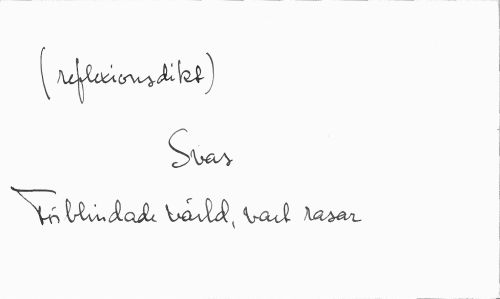 (reflexionsdikt)
Svar
Förblindade värld, vart rasar